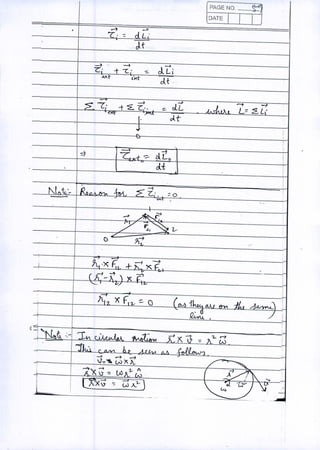 PAGE NO.
DATE
τ⃗i = dL⃗i/dt
τ⃗i ext + τ⃗i int = dL⃗i/dt
Σ τ⃗i ext + Σ τ⃗i int = dL⃗/dt , where L⃗ = Σ L⃗i
↓
0
⇒ τ⃗ext = dL⃗/dt
Note:- Reason for Σ τ⃗i int = 0
r⃗1 × F⃗12 + r⃗2 × F⃗21
(r⃗1 - r⃗2) × F⃗12
r⃗12 × F⃗12 = 0 (as they are on the same)
line.
Note:- In circular motion r⃗ × v⃗ = r² ω⃗.
This can be seen as follows.
v⃗ = ω⃗ × r⃗
r⃗ × v⃗ = ω r² ω̂
r⃗ × v⃗ = ω⃗ r²